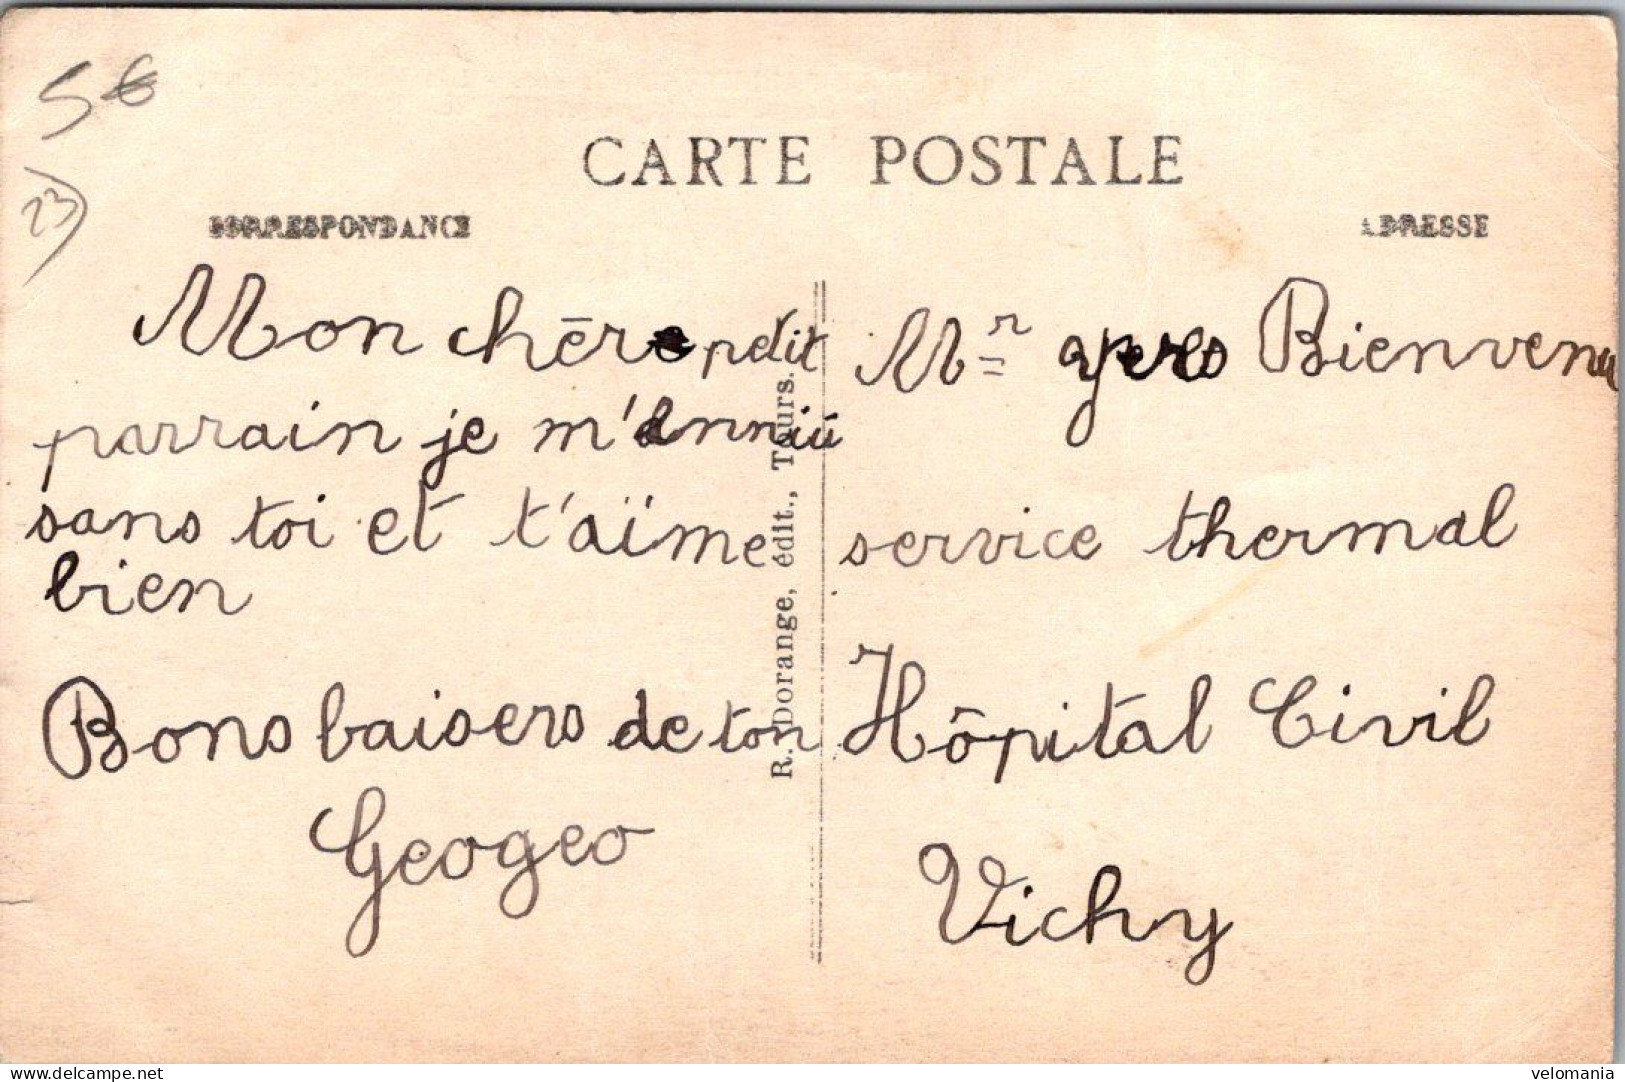 5€
23
CARTE POSTALE
CORRESPONDANCE
ADRESSE
Mon chère petit
parrain je m'enniù
sans toi et t'aïme
bien
Bons baisers de ton
Geogeo
R. Dorange, édit., Tours.
Mr Bienvenu
service thermal
Hôpital Civil
Vichy
delcampe.net
velomania